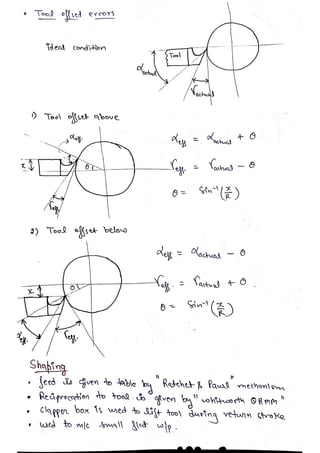 • Tool offset errors
ideal condition
Tool
αactual
γactual
1) Tool offset above
αeff.
αeff = αactual + θ
x
θ
γeff. = γactual - θ
γeff.
θ = sin⁻¹(x/R)
2) Tool offset below
αeff = αactual - θ
x
θ
γeff. = γactual + θ.
θ = sin⁻¹(x/R)
αeff.
γeff.
Shaping
• feed is given to table by "Ratchet & Pawl" mechanism
• Reciprocation to tool is given by "whitworth QRMM"
• Clapper box is used to lift tool during return stroke
• used to m/c small flat w/p.